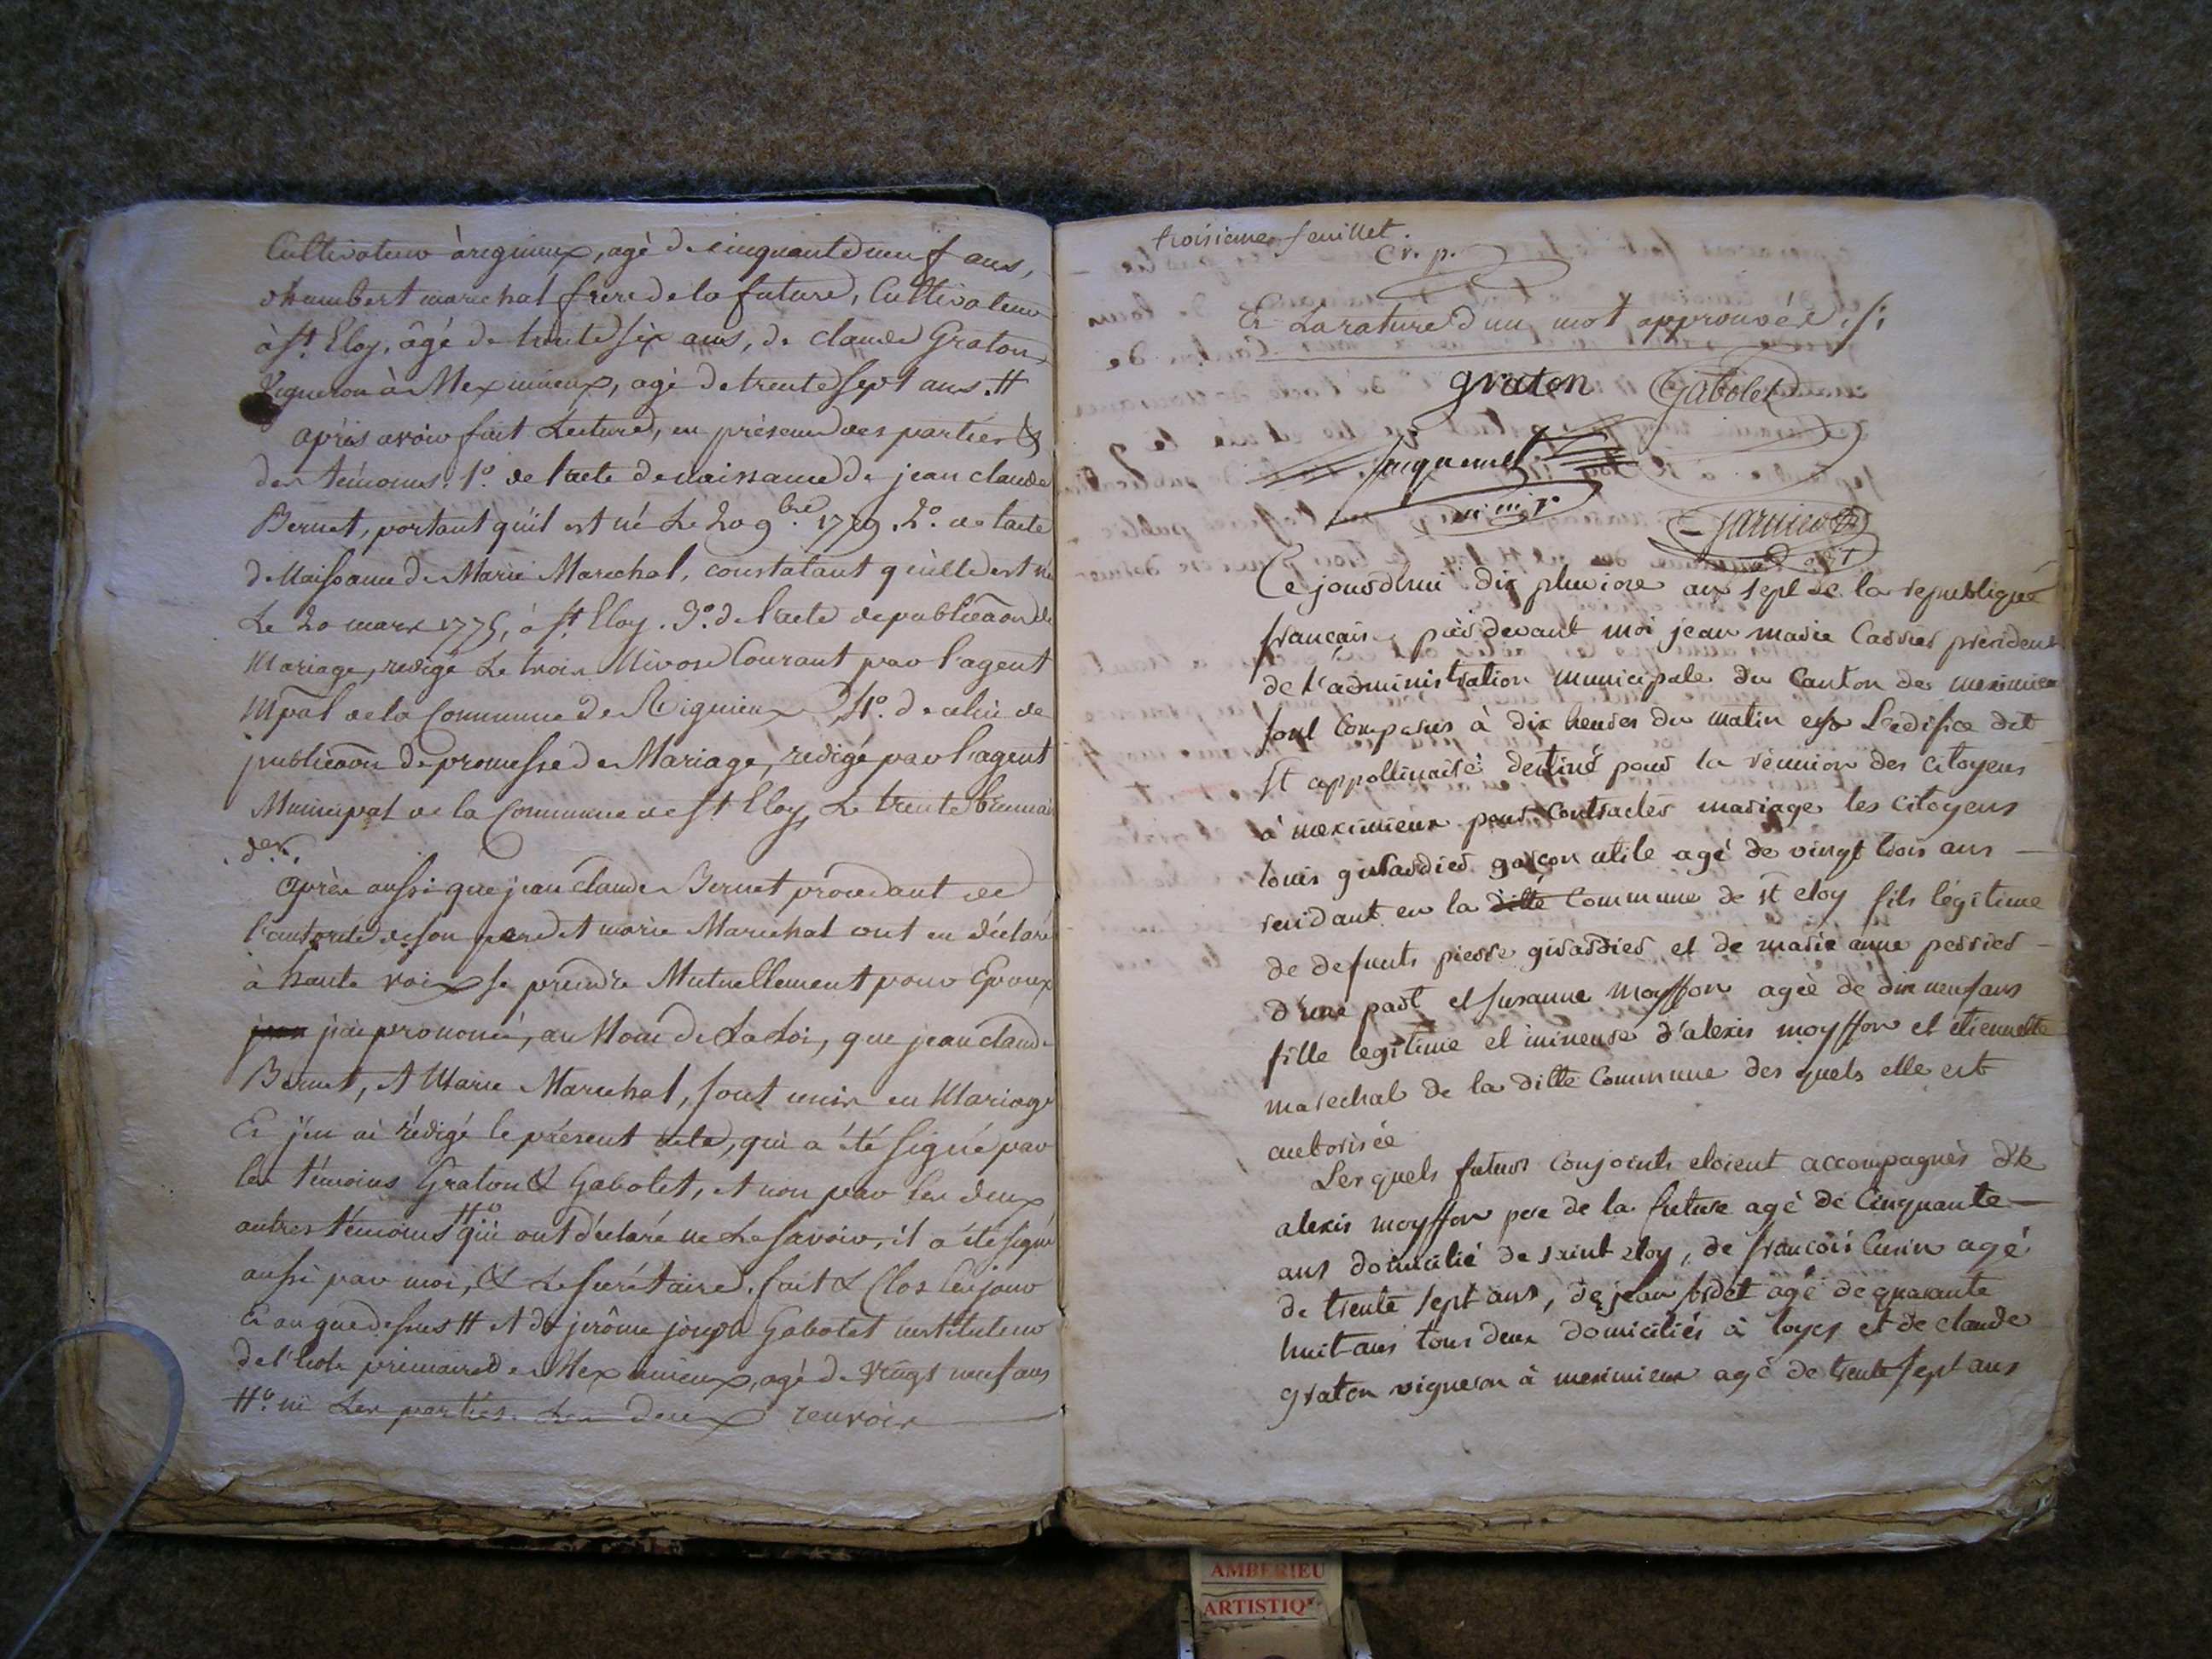 Cultivateur à rigneux, agé de cinquante neuf ans,
d'humbert marechal frere de la future, Cultivateur
à St. Eloy, âgé de trente six ans, de claude Graton
Vigneron à Meximieux, agé de trente sept ans. #
après avoir fait Lecture, en présence des parties &
des témoins. 1.o de l'acte de naissance de jean claude
Bernet, portant qu'il est né Le 20 9.bre 1779. 2.o de l'acte
de Naissance de Marie Marechal, constatant qu'elle est née
Le 20 mars 1775, à St. Eloy. 3.o de l'acte de publicaon de
Mariage, redigé Le trois Nivose Courant par l'agent
Mpal de la Commune de Rignieux 4.o de celui de
publicaon de promesse de Mariage, redigé par l'agent
Municipal de la Commune de St Eloy, Le trente brumaire
der.
après aussi que jean claude Bernet procedant de
l'autorité de son pere et marie Marechal ont eu déclaré
à haute voix se prendre Mutuellement pour Epoux
j'ai prononcé, au Nom de La Loi, que jean claude
Bernet, et Marie Marechal, sont unis en Mariage
Et j'en ai rédigé le présent acte, qui a été signé par
les témoins Graton & Gabolet, et non par les deux
autres témoins #o qui ont déclaré ne Le savoir, il a été signé
aussi par moi, & Le secrétaire. fait & Clos Les jour
Et an que dessus # et de jerôme joseph Gabolet instituteur
de l'école primaire de Meximieux, agé de vingt neuf ans
#o ni Les parties. Les deux renvois
troisieme feuillet.
cr. p.
Et La rature d'un mot approuvée
graton Gabolet
Jacquemet
Carrier
Ce jourd'hui dix pluviose an sept de la republique
français, pardevant moi jean marie Carrier président
de l'administration municipale du Canton de meximieux
sont comparus à dix heures du matin en L'edifice dit
St appollinaire destiné pour la réunion des citoyens
à meximieux pour contracter mariage les citoyens
louis girardier garçon utile agé de vingt trois ans
residant en la ditte Commune de st eloy fils légitime
de defunts pierre girardier et de marie anne perrier
d'une part et susanne moyffon agée de dix neuf ans
fille legitime et mineure d'alexis moyffon et etiennette
marechal de la ditte Commune des quels elle est
authorisée
Lesquels futurs conjoints etoient accompagnés de
alexis moyffon pere de la future agé de Cinquante
ans domicilié de saint eloy, de francois Cusin agé
de trente sept ans, de jean agé de quarante
huit ans tous deux domiciliés à loyes et de claude
graton vigneron à meximieux agé de trente sept ans
AMBERIEU
ARTISTIQ